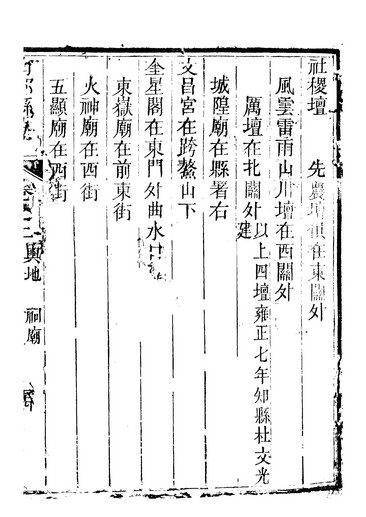 社稷壇　先農壇俱在東關外
風雲雷雨山川壇在西關外
厲壇在北關外以上四壇雍正七年知縣杜文光
建
城隍廟在縣署右
文昌宮在跨鰲山下
奎星閣在東門外曲水
東嶽廟在前東街
火神廟在西街
五顯廟在西街
縣 卷之二 輿地 祠廟